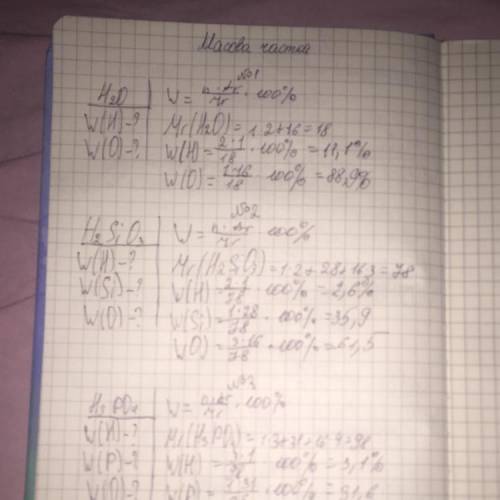 Масова частка
№1
H2O | W = n·Ar/Mr · 100%
W(H)-? | Mr(H2O) = 1·2+16 = 18
W(O)-? | W(H) = 2·1/18 · 100% = 11,1%
W(O) = 1·16/18 · 100% = 88,9%
№2
H2SiO3 | W = n·Ar/Mr · 100%
W(H)-? | Mr(H2SiO3) = 1·2+28+16·3 = 78
W(Si)-? | W(H) = 2·1/78 · 100% = 2,6%
W(O)-? | W(Si) = 1·28/78 · 100% = 35,9
W(O) = 3·16/78 · 100% = 61,5
№3
H3PO4 | W = n·Ar/Mr · 100%
W(H)-? | Mr(H3PO4) = 1·3+31+16·4=98
W(P)-? | W(H) = 3·1/98 · 100% = 3,1%
W(O)-? | W(P) = 100% =